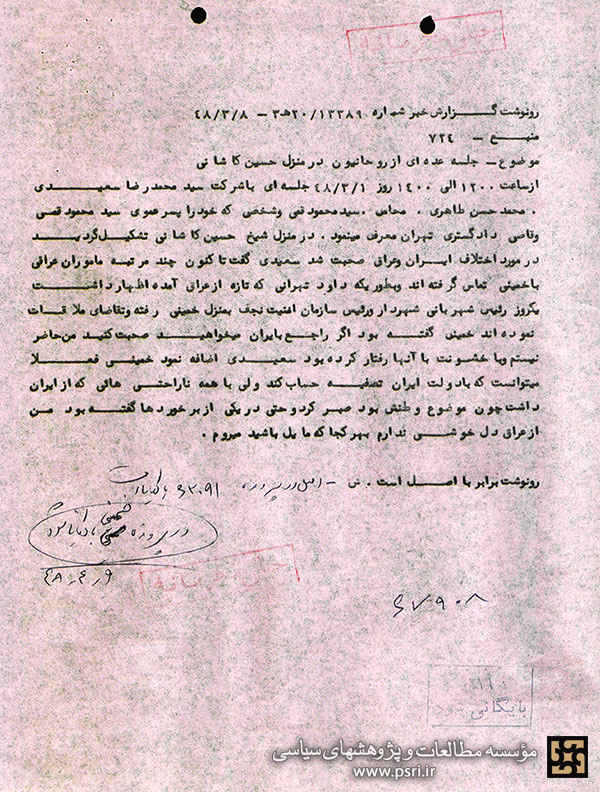 رونوشت گزارش خبر شماره ۲۰/۱۳۳۸۹هـ۳ – ۴۸/۳/۸
منبع – ۷۲۴
موضوع – جلسه عده ای از روحانیون در منزل حسین کاشانی
از ساعت ۱۲۰۰ الی ۱۴۰۰ روز ۴۸/۳/۱ جلسه ای باشرکت سید محمد رضا سعیدی
. محمد حسن طاهری . محامی . سید محمود قمی وشخصی که خود را پسر عموی سید محمود قمی
وقاضی دادگستری تهران معرفی مینمود . در منزل شیخ حسین کاشانی تشکیل گردید
در مورد اختلاف ایران وعراق صحبت شد سعیدی گفت تا کنون چند مرتبه ماموران عراقی
باخمینی تماس گرفته اند وبطوریکه داود تهرانی که تازه از عراق آمده اظهار داشت
یکروز رئیس شهربانی شهردار ورئیس سازمان امنیت نجف بمنزل خمینی رفته وتقاضای ملاقات
نموده اند خمینی گفته بود اگر راجع بایران میخواهید صحبت کنید من حاضر
نیستم وبا خشونت با آنها رفتار کرده بود سعیدی اضافه نمود خمینی فعلا
میتوانست که بادولت ایران تصفیه حساب کند ولی با همه ناراحتی هائی که از ایران
داشت چون موضوع وطنش بود صبر کرد وحتی در یکی از برخوردها گفته بود من
از عراق دل خوشی ندارم بهر کجا که مایل باشید میروم .
رونوشت برابر با اصل است . ش – اصل در پرونده ۶۲۰۹۱ بایگانی است
در پرونده خمینی بایگانی شود
۴۸/۴/۹
۶۷۹۰۸
بایگانی شود
مؤسسه مطالعات و پژوهشهای سیاسی
www.psri.ir